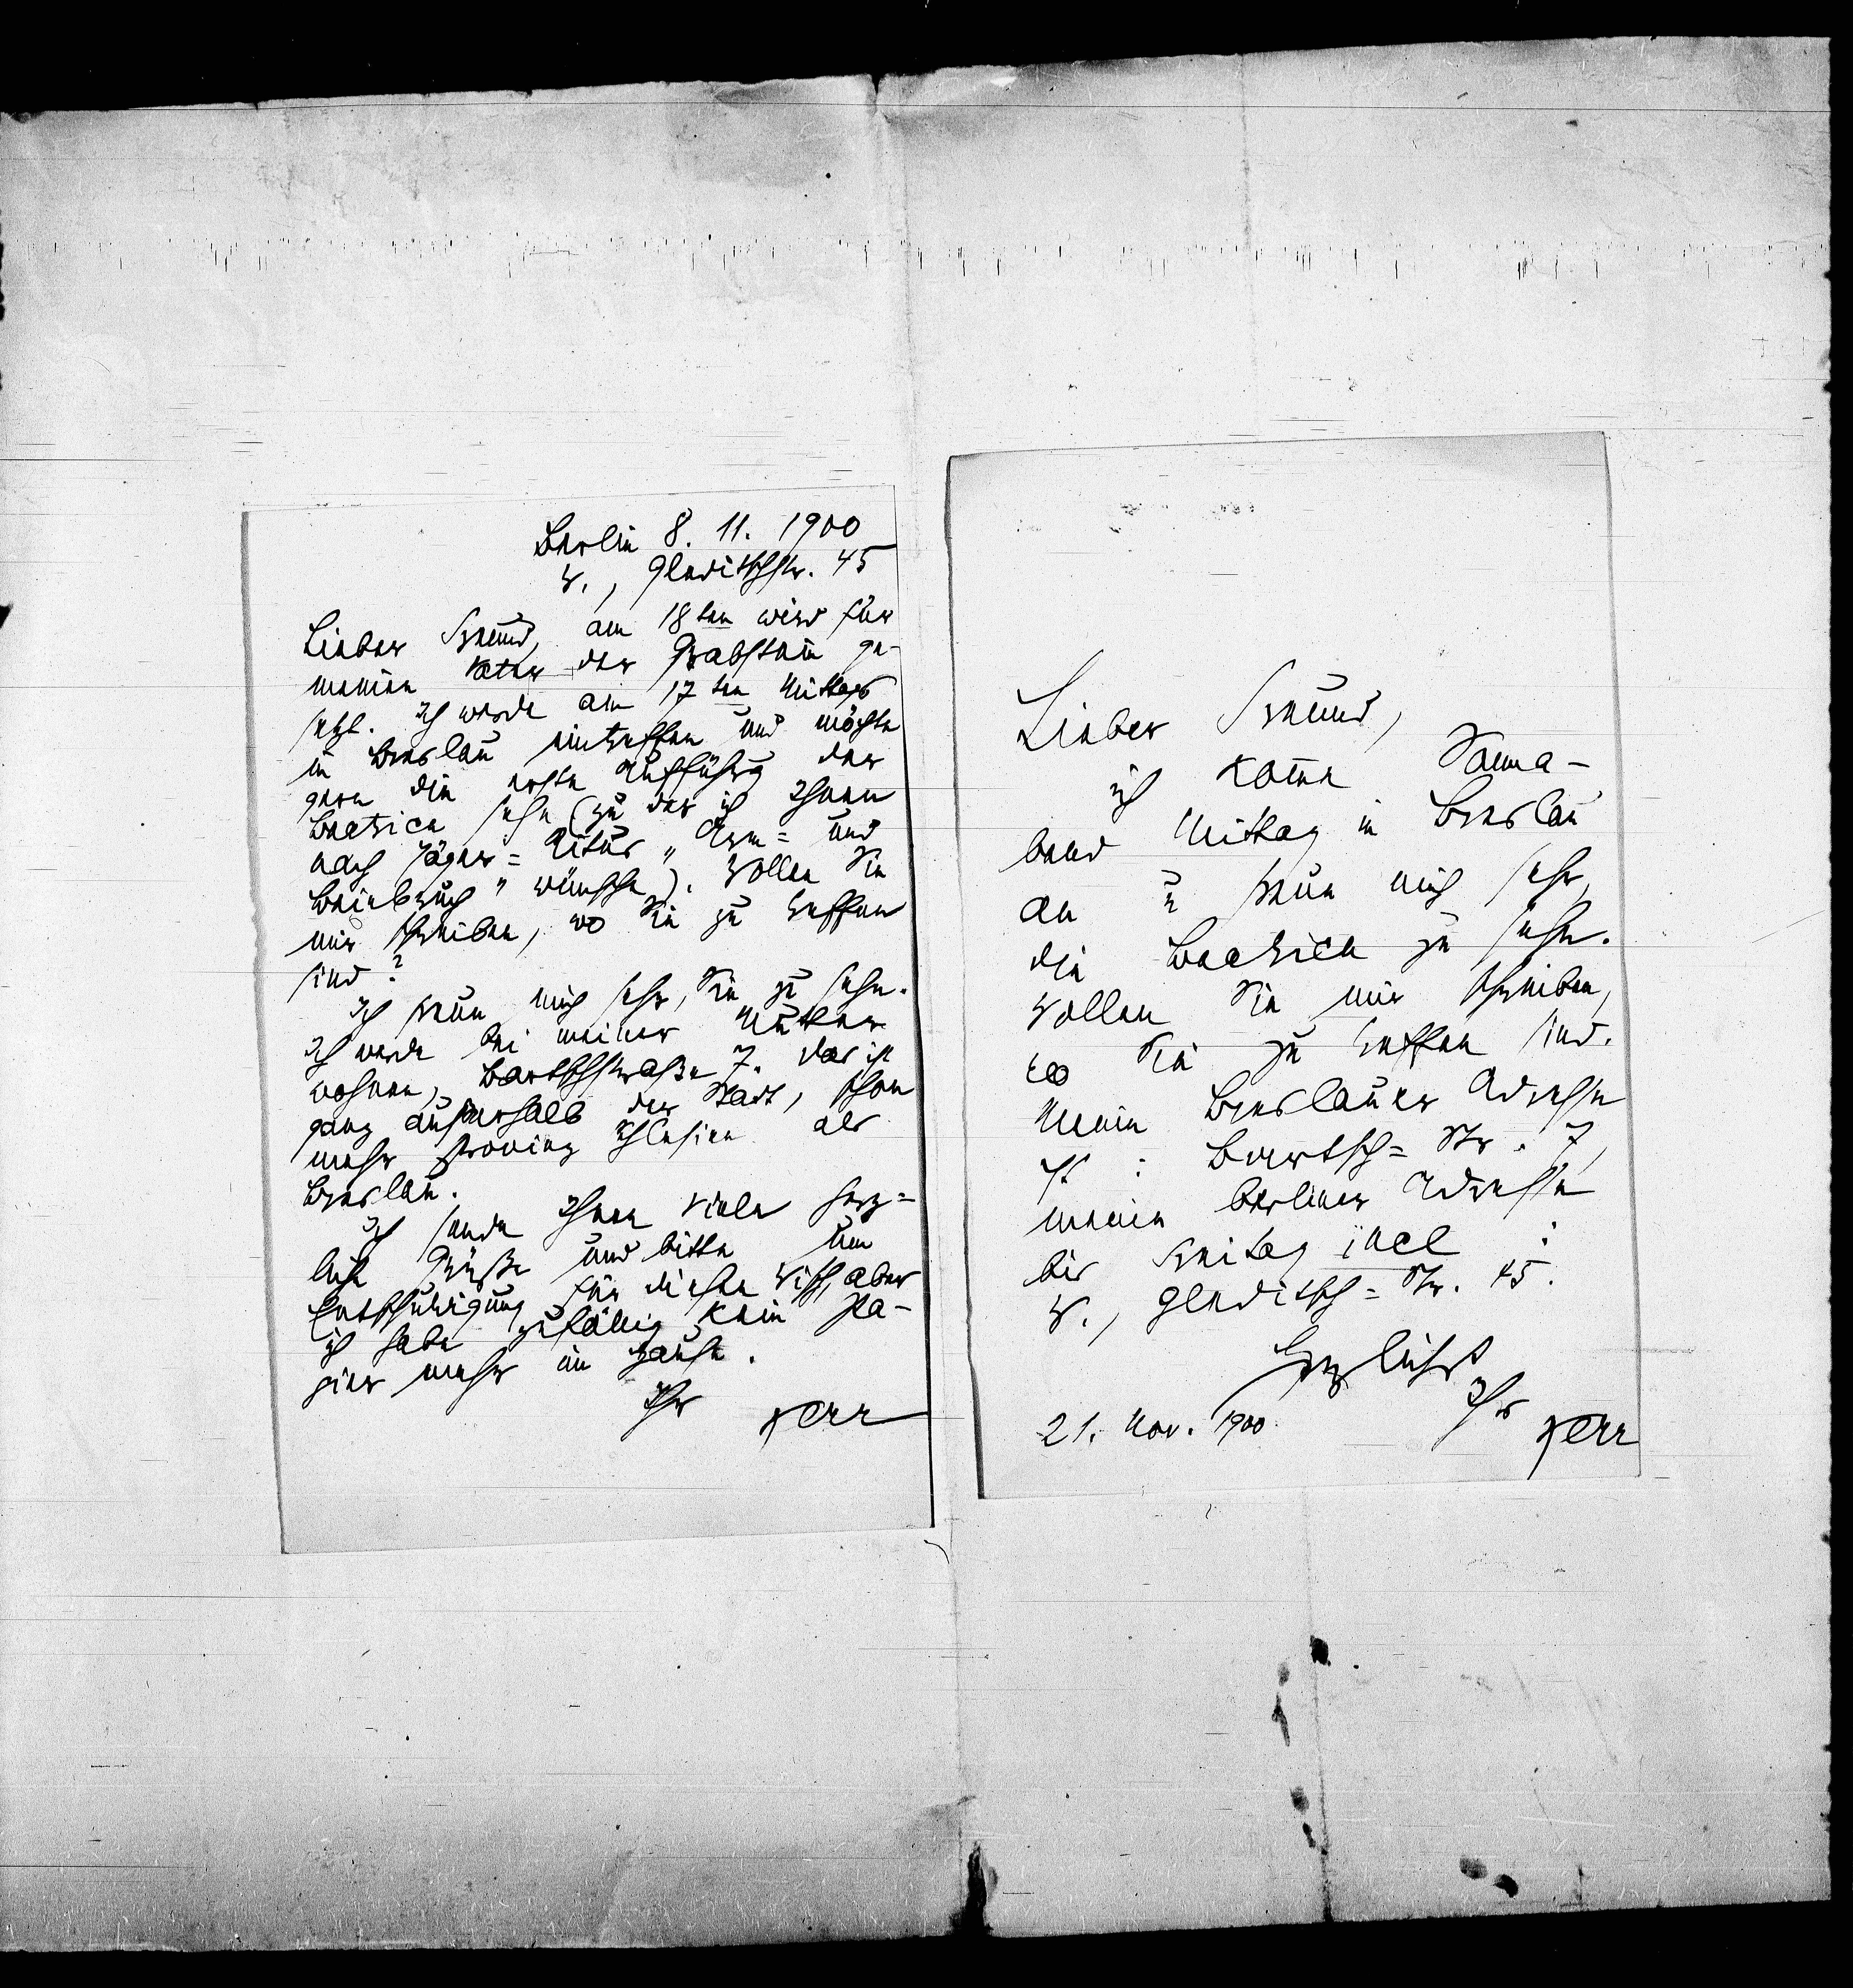 Berlin 8. 11. 1900
W., Gleditschstr. 45
Lieber Freund, am 18ten wird für
meinen Vater der Grabstein ge-
setzt. Ich werde am 17ten Mittags
in Breslau eintreffen und möchte
gern die erste Aufführg der
Beatrice sehn (zu der ich Ihnen
nach Jäger= Ritus „Arm= und
Beinbruch" wünsche). Wollen Sie
mir schreiben, wo Sie zu treffen
sind?
Ich freue mich sehr, Sie zu sehn.
Ich werde bei meiner Mutter
wohnen, Bartschstraße 7. Das ist
ganz außerhalb der Stadt, schon
mehr Provinz Schlesien als
Breslau.
Ich sende Ihnen viele herz=
liche Grüße und bitte um
Entschuldigung für diesen Wisch, aber
ich habe zufällig kein Pa-
pier mehr im Hause.
Ihr Kerr
Lieber Freund,
ich komme Sonna-
bend Mittag in Breslau
an u freue mich sehr,
die Beatrice zu sehn.
Wollen Sie mir schreiben,
wo Sie zu treffen sind.
Meine Breslauer Adresse
ist: Bartsch= Str. 7,
meine Berliner Adresse
bis Freitag incl :
W., Gleditsch= Str. 45.
Herzlichst
Ihr
21. Nov. 1900. Kerr